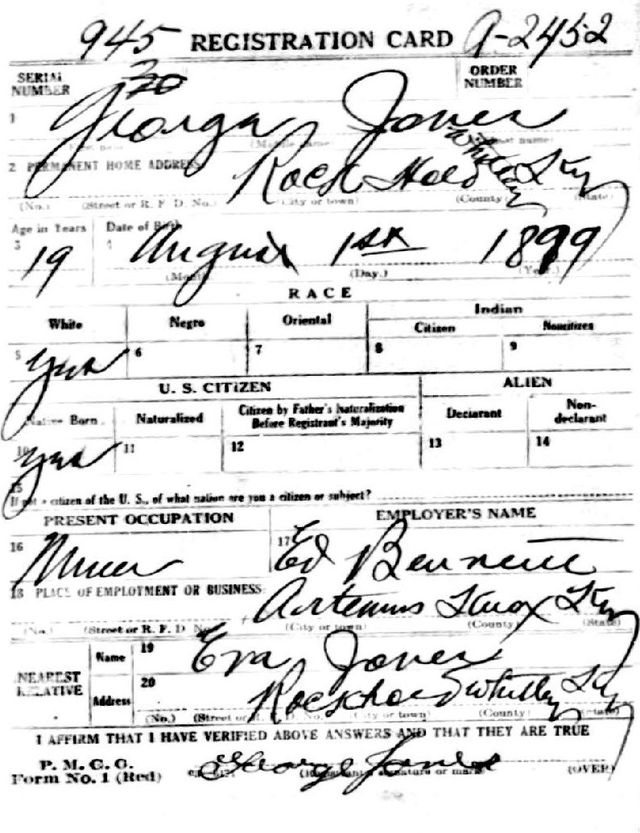 945 REGISTRATION CARD A-2452
SERIAL NUMBER ORDER NUMBER
1 George Jones
(Middle name
2 PERMANENT HOME ADDRESS
Rock Hold Whitley Ky
(No.) (Street or R. F. D. No.) (City or town) (County) (State)
Age in Years Date of Birth
3 19 4 August 1st 1899
(Month) (Day.) (Year.)
RACE
White Negro Oriental Indian
Citizen Noncitizen
5 yes 6 7 8 9
U. S. CITIZEN ALIEN
Native Born Naturalized Citizen by Father's Naturalization Before Registrant's Majority Declarant Non-declarant
10 yes 11 12 13 14
15
If not a citizen of the U. S., of what nation are you a citizen or subject?
PRESENT OCCUPATION EMPLOYER'S NAME
16 Miner 17 Ed Bennett
18 PLACE OF EMPLOYMENT OR BUSINESS
Artemus Knox Ky
(No.) (Street or R. F. D No.) (City or town) (County) (State)
NEAREST RELATIVE
Name 19 Eva Jones
Address 20 Rockhold Whitley Ky
(No.) (Street or R. F. D. No.) (City or town) (County) (State)
I AFFIRM THAT I HAVE VERIFIED ABOVE ANSWERS AND THAT THEY ARE TRUE
P. M. G. O.
Form No. 1 (Red) George Jones
(Registrant's signature or mark) (OVER)